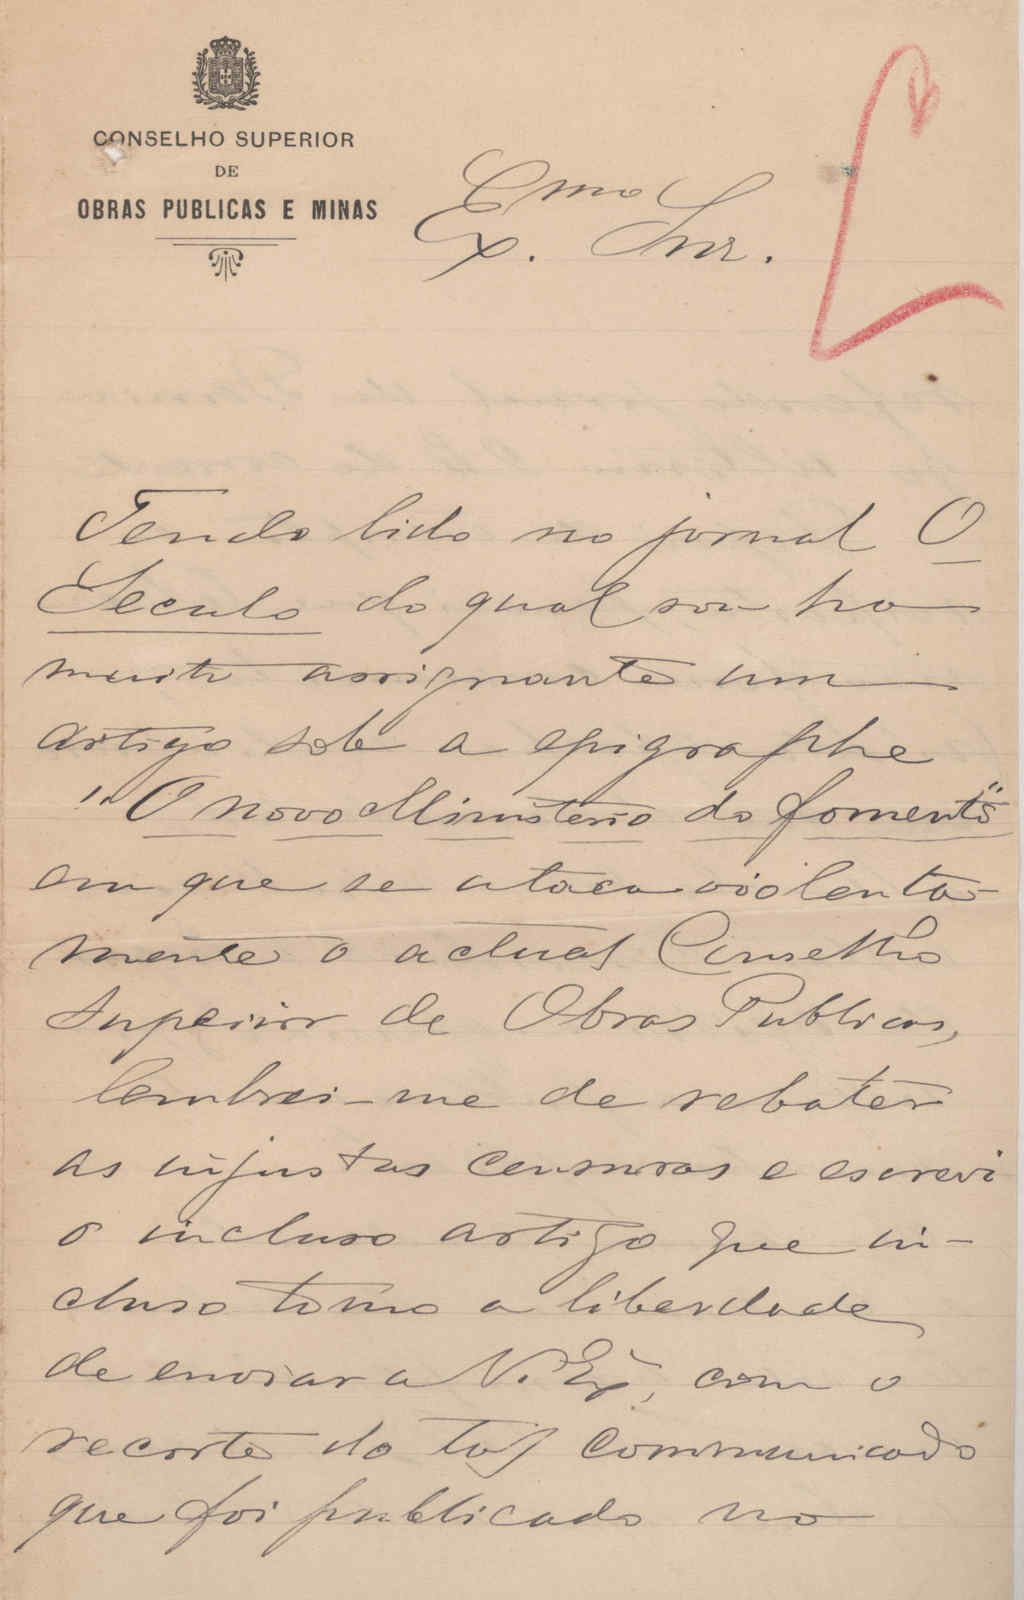 CONSELHO SUPERIOR
DE
OBRAS PUBLICAS E MINAS
Ex.mo Snr.
Tendo lido no jornal O
Seculo do qual sou ha
muito assignante um
artigo sob a epigraphe
"O novo Ministerio do fomento"
em que se ataca violenta-
mente o actual Conselho
Superior de Obras Publicas,
lembrei-me de rebater
as injustas censuras e escrevi
o incluso artigo que in-
cluso tomo a liberdade
de enviar a V. Exª, com o
recorte do tal communicado
que foi publicado no